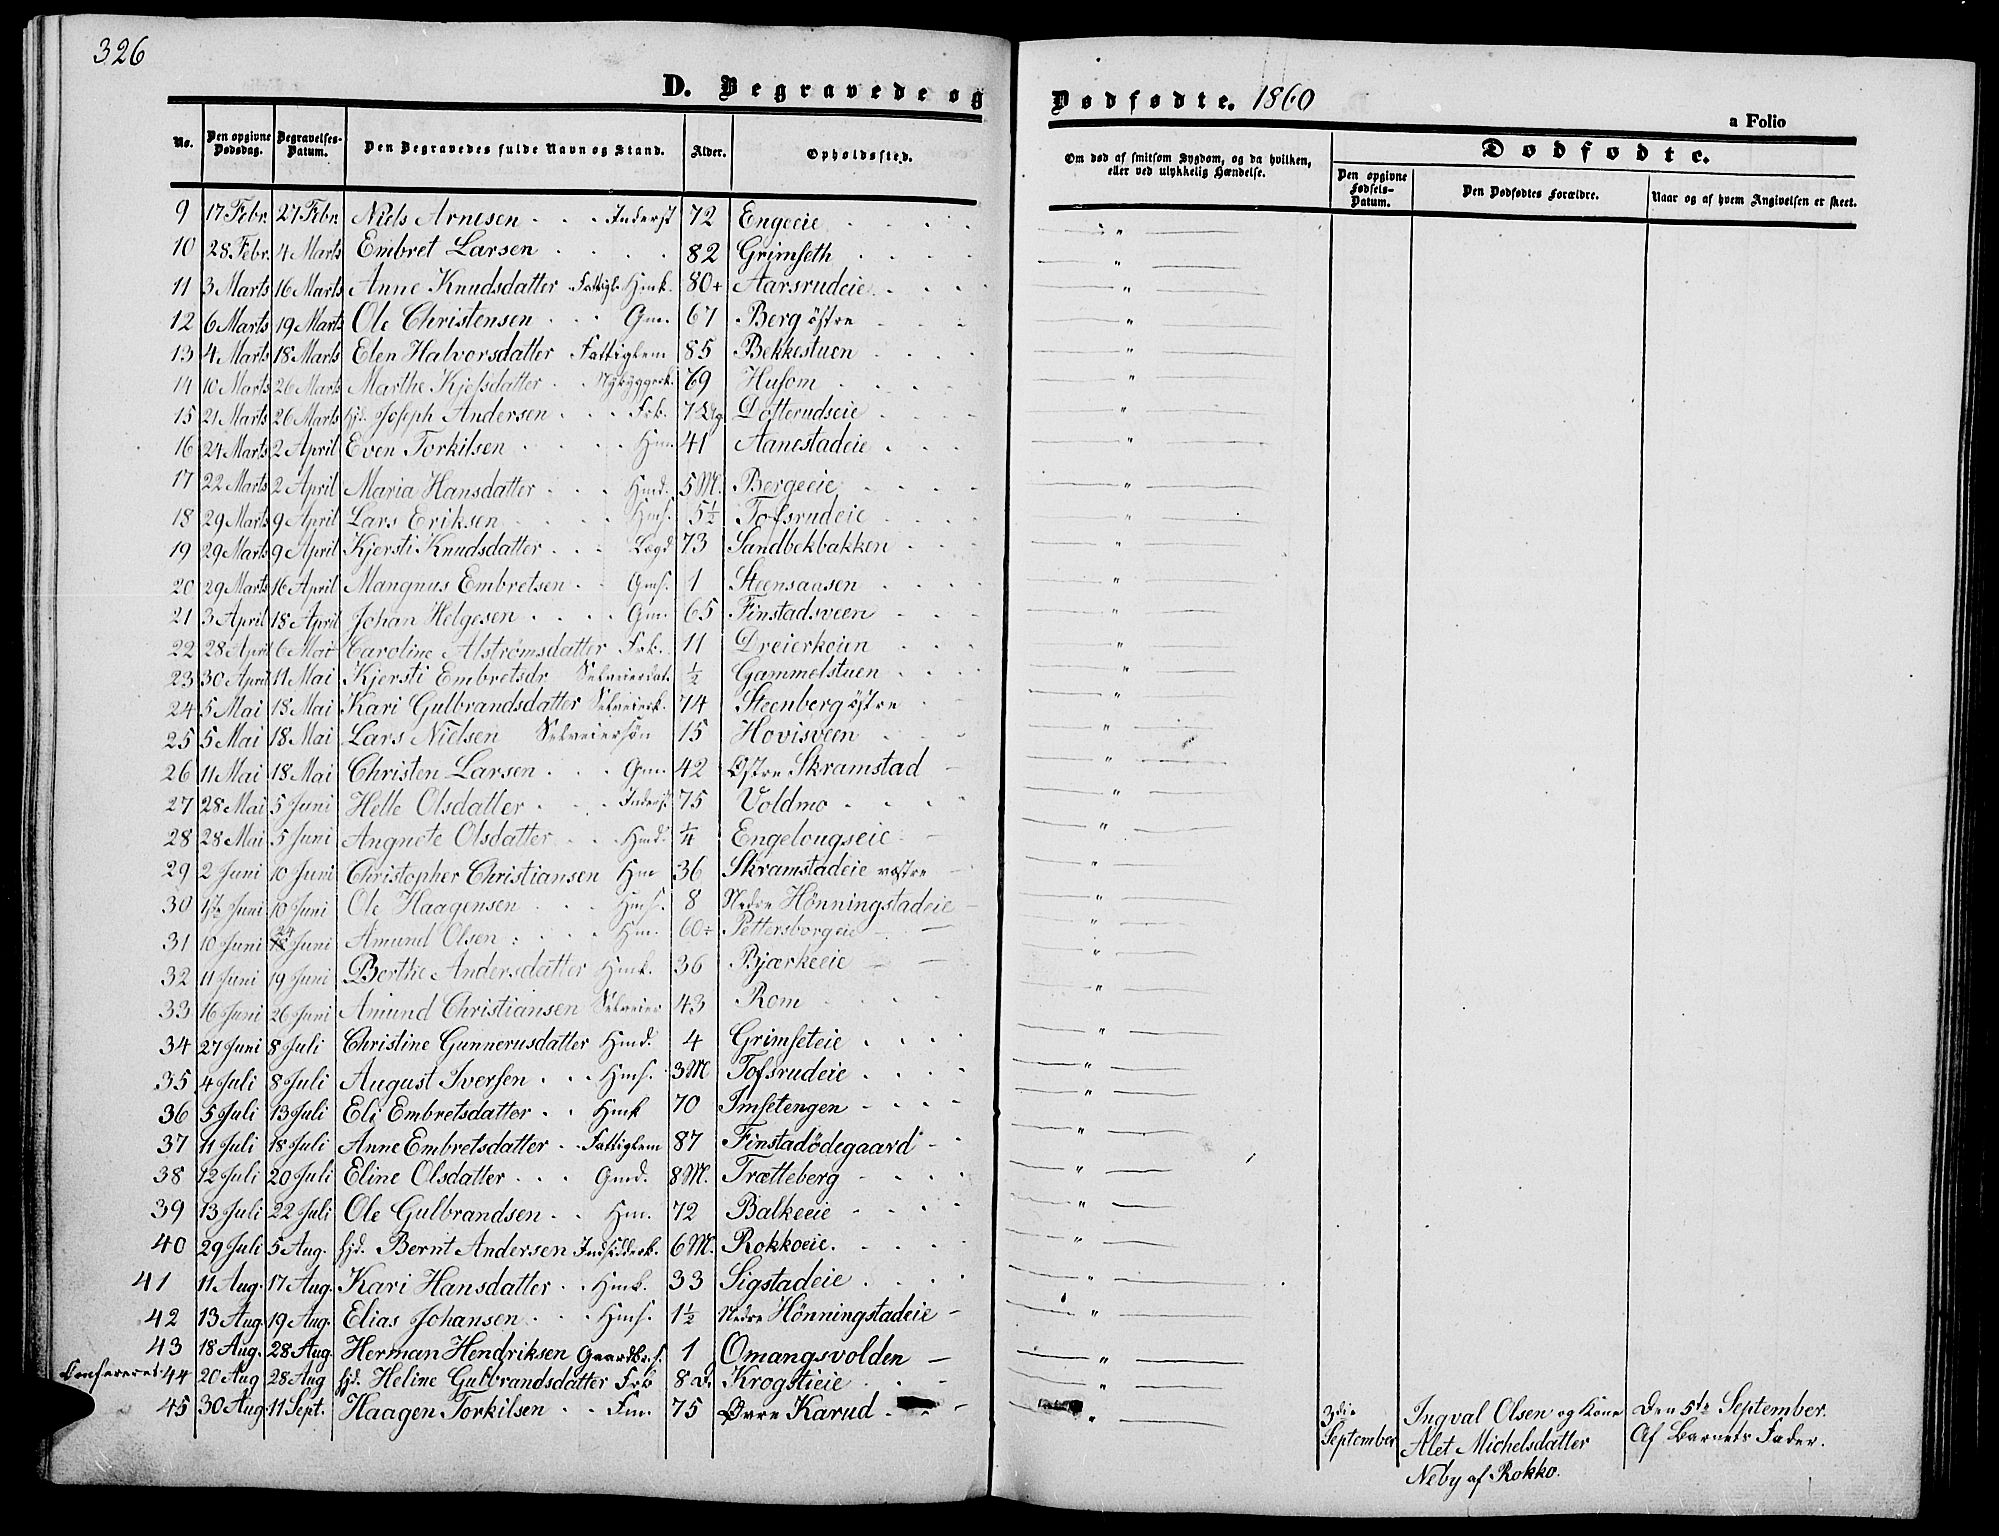 326
D. Begravede og Dødfødte. 1860
a Folio
No. Den opgivne Dødsdag. Begravelses-Datum. Den Begravedes fulde Navn og Stand. Alder. Opholdssted. Om død af smitsom Sygdom, og da hvilken, eller ved ulykkelig Hændelse. Dødfødte. Den opgivne Fødsels-Datum. Den Dødfødtes Forældre. Naar og af hvem Angivelsen er skeet.
9 17 Febr. 27 Febr. Niels Arnesen Inderst 72 Engeeie
10 28 Febr. 4 Marts Embret Larsen 82 Grimseth
11 3 Marts 16 Marts Anne Knudsdatter Fattigl. Hmk. 80+ Aarsrudeie
12 6 Marts 19 Marts Ole Christensen Gm. 67 Berg østre
13 4 Marts 18 Marts Elen Halvorsdatter Fattiglem 85 Bekkestuen
14 10 Marts 26 Marts Marthe Kjelsdatter Nybyggerk. 69 Husom
15 21 Marts 26 Marts hjd. Joseph Andersen Frk. 7 Dotterudseie
16 24 Marts 2 April Even Torkilsen Hm. 41 Aanestadeie
17 22 Marts 2 April Maria Hansdatter Hmd. 5 M. Bergeeie
18 29 Marts 9 April Lars Eriksen Hms. 5½ Tofsrudeie
19 29 Marts 9 April Kjersti Knudsdatter Lægd 73 Sandbekbakken
20 29 Marts 16 April Mangnus Embretsen Gms. 1 Steensaasen
21 3 April 18 April Johan Helgesen Gm. 65 Finstadsveen
22 28 April 6 Mai Caroline Alstrømsdatter Frk. 11 Dreierkoien
23 30 April 11 Mai Kjersti Embretsdr Selveierdat. ½ Gammelstuen
24 5 Mai 18 Mai Kari Gulbrandsdatter Selveierk. 74 Steenberg østre
25 5 Mai 18 Mai Lars Nielsen Selveiersøn 15 Hovisveen
26 11 Mai 18 Mai Christen Larsen Gm. 42 Østre Skramstad
27 28 Mai 5 Juni Helle Olsdatter Inderst 75 Voldmo
28 28 Mai 5 Juni Angnete Olsdatter Hmd. ¼ Engelougseie
29 2 Juni 10 Juni Christopher Christiansen Hm 36 Skramstadeie vestre
30 1ste Juni 10 Juni Ole Haagensen Hms. 8 Nedre Hönningstadeie
31 10 Juni 24 Juni Amund Olsen Hm. 60÷ Pettersborgeie
32 11 Juni 19 Juni Berthe Andersdatter Hmk. 36 Bjærkeeie
33 16 Juni 26 Juni Amund Christiansen Selveier 43 Rom
34 27 Juni 8 Juli Christine Gunnerusdatter Hmd. 4 Grimseteie
35 4 Juli 8 Juli August Iversen Hms. 3 M Tofsrudeie
36 5 Juli 13 Juli Eli Embretsdatter Hmk 70 Imsetengen
37 11 Juli 18 Juli Anne Embretsdatter Fattiglem 87 Finstadödegaard
38 12 Juli 20 Juli Eline Olsdatter Gmd. 8 M. Trætteberg
39 13 Juli 22 Juli Ole Gulbrandsen Hm. 72 Balkeeie
40 29 Juli 5 Aug. hjd. Bernt Andersen Indsidderk. 6 M. Rokkoeie.
41 11 Aug. 17 Aug. Kari Hansdatter Hmk. 33 Sigstadeie
42 13 Aug. 19 Aug. Elias Johansen Hms. 1½ Nedre Hönningstadeie
43 18 Aug. 28 Aug. Herman Hendriksen Gaardbr.s. 1 Omangsvolden
Confereres 44 20 Aug 28 Aug hjd. Heline Gulbrandsdatter Frk 8 D. Krogstieie
45 30 Aug. 11 Sept. Haagen Torkilsen Fm. 75 Øvre Karud
3die September Ingval Olsen og Kone Den 5te September.
Alet Michelsdatter Af Barnets Fader.
Neby af Rokko.